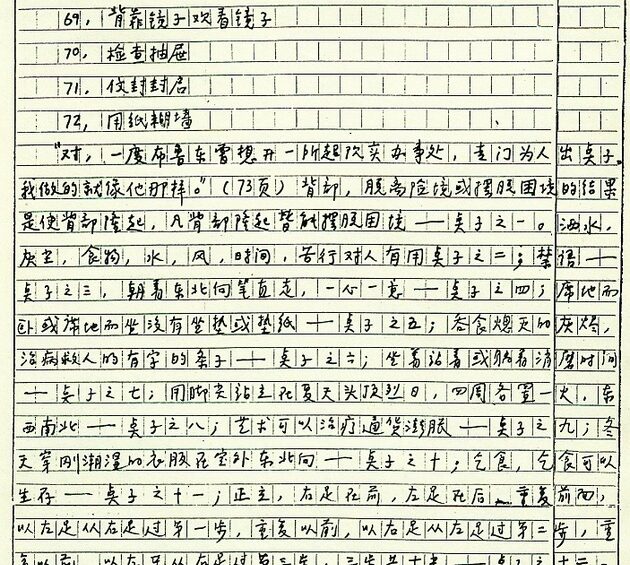 69，背靠镜子欢看镜子
70，检查抽屉
71，仅封封启
72，用纸糊墙
"对，一度布鲁东曾想开一所超次实办事处，专门为人出点子。
我做的就像他那样。"(73页)背部，脱离险境或摆脱困境的结果
是使背部隆起，凡背部隆起皆能摆脱困境——点子之一。洒水，
灰尘，食物，水，风，时间，苦行对人有用点子之二；禁语——
点子之三，朝着东北向笔直走，一心一意——点子之四；席地而
卧或席地而坐没有坐垫或垫纸——点子之五；吞食熄灭的灰烬，
治病救人的有字的条子——点子之六；坐着站着或躺着消磨时间
——点子之七；用脚尖站立在夏天头顶烈日，四周各置一火，东
西南北——点子之八；艺术可以治疗通货潮眠——点子之九；冬
天穿刚潮湿的衣服在室外东北向——点子之十；乞食，乞食可以
生存——点子之十一；正立，右足在前，左足在后，重复前面，
以左足从右足过第一步，重复以前，以右足从左足过第二步，重